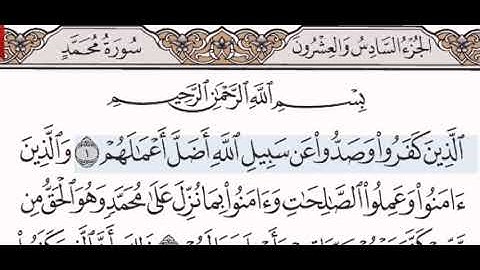 الجُزءُ السَّادِسُ وَالعِشْرُونَ
سُورَةُ مُحَمَّدٍ
بِسْمِ ٱللَّهِ ٱلرَّحْمَٰنِ ٱلرَّحِيمِ
ٱلَّذِينَ كَفَرُوا۟ وَصَدُّوا۟ عَن سَبِيلِ ٱللَّهِ أَضَلَّ أَعْمَٰلَهُمْ ١ وَٱلَّذِينَ
ءَامَنُوا۟ وَعَمِلُوا۟ ٱلصَّٰلِحَٰتِ وَءَامَنُوا۟ بِمَا نُزِّلَ عَلَىٰ مُحَمَّدٍ وَهُوَ ٱلْحَقُّ مِن